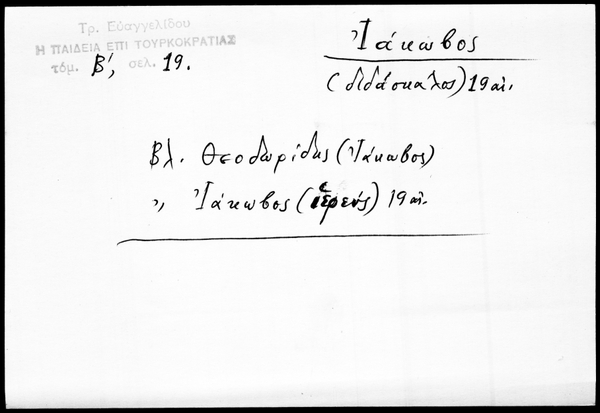 Τρ. Εὐαγγελίδου
Η ΠΑΙΔΕΙΑ ΕΠΙ ΤΟΥΡΚΟΚΡΑΤΙΑΣ
τόμ. Β', σελ. 19.
Ἰάκωβος
(διδάσκαλος) 19 αἰ.
Βλ. Θεοδωρίδης (Ἰάκωβος)
,, Ἰάκωβος (ἱερεύς) 19 αἰ.